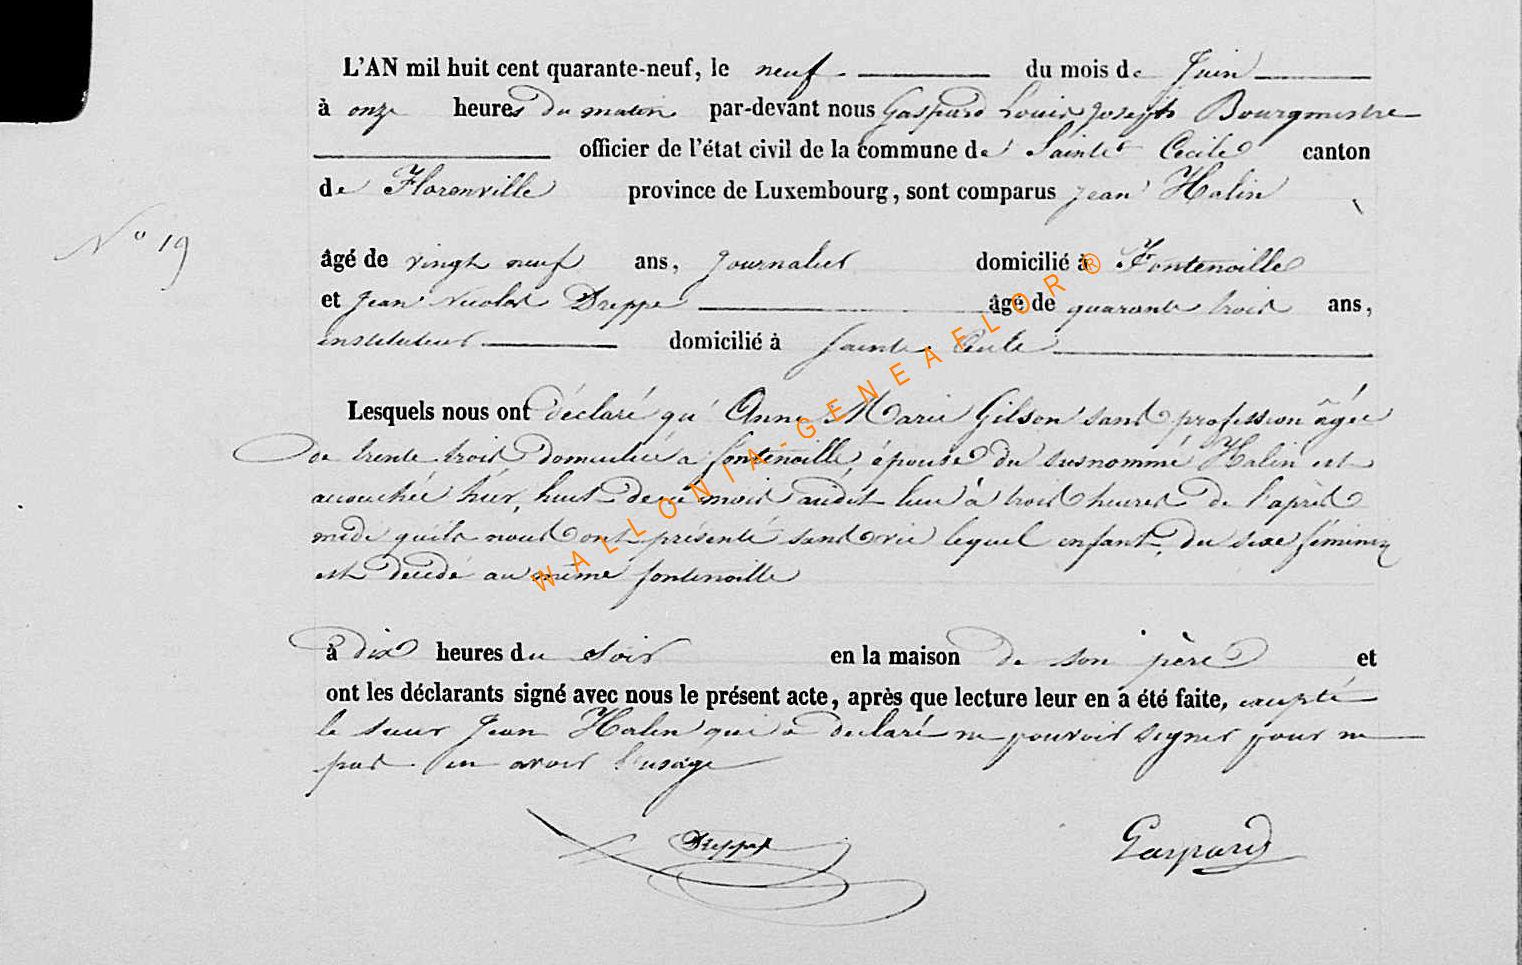 L'AN mil huit cent quarante-neuf, le neuf du mois de Juin
à onze heures du matin par-devant nous Gaspard Louis Joseph Bourgmestre
officier de l'état civil de la commune de Sainte Cecile canton
de Florenville province de Luxembourg, sont comparus Jean Halin
N° 19
âgé de vingt neuf ans, Journalier domicilié à Fontenoille
et Jean Nicolas Dreppe âgé de quarante trois ans,
instituteur domicilié à Sainte Cecile
Lesquels nous ont déclaré qu' Anne Marie Gilson sans profession âgée
de trente trois domiciliée a fontenoille, épouse du susnommé Halin est
accouchée hier, huit de ce mois audit lieu à trois heures de l'après
midi qu'ils nous ont présenté sans vie lequel enfant, du sexe féminin
est décédé au même fontenoille
à dix heures du soir en la maison de son père et
ont les déclarants signé avec nous le présent acte, après que lecture leur en a été faite, excepté
le sieur Jean Halin qui a déclaré ne pouvoir signer pour ne
pas en avoir l'usage
Dreppe Gaspard
WALLONIA-GENEAFLOR®